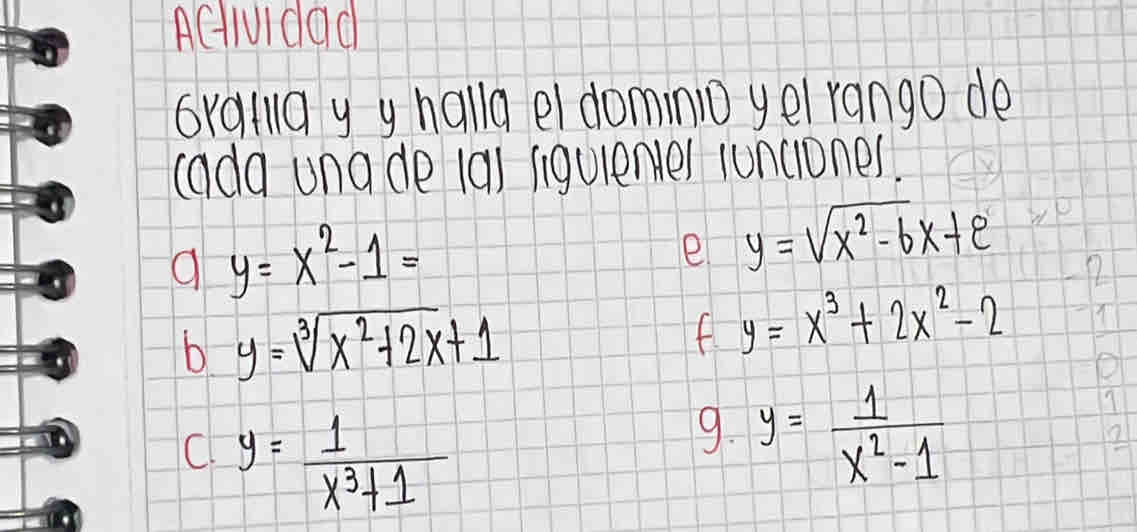 Actividad
Grafica y y halla el dominio y el rango de
cada una de las siguientes funciones.
a y = x² - 1 =
e. y = √(x² - 6x + 8)
b. y = ∛(x² + 2x) + 1
f. y = x³ + 2x² - 2
c. y = 1/(x³ + 1)
g. y = 1/(x² - 1)